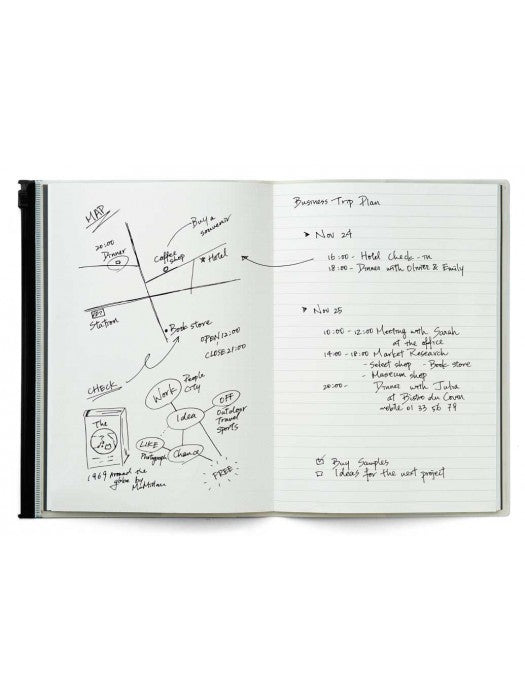 MAP
Buy a
souvenir
20:00
Dinner
Coffee
shop
Hotel
Station
Book store
OPEN 12:00
CLOSE 21:00
CHECK
Work
People
City
OFF
Outdoor
Travel
Sports
Idea
LIKE
Photograph
Chance
FREE
The
1969 around the
globe by
Business Trip Plan
Nov 24
16:00 - Hotel Check-in
18:00 - Dinner with Oliver & Emily
Nov 25
10:00 - 12:00 Meeting with Sarah
at the office
14:00 - 18:00 Market Research
- Select shop - Book store
- Museum shop
20:00 - Dinner with Julia
at Bistro du Coven
mobile 01 33 56 79
Buy Samples
Ideas for the next project